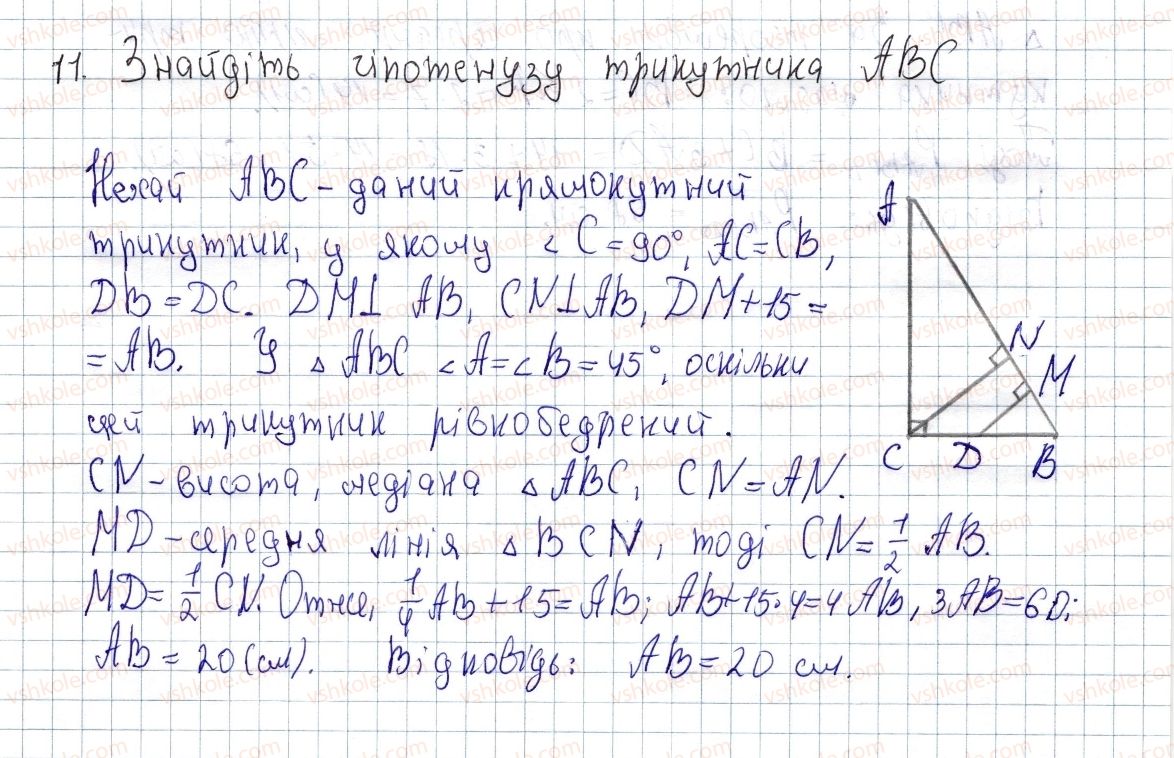 11. Знайдіть гіпотенузу трикутника ABC
Нехай ABC - даний прямокутний
трикутник, у якому < C = 90°, AC = CB,
DB = DC. DM ⊥ AB, CN ⊥ AB, DM + 15 =
= AB. У △ ABC < A = < B = 45°, оскільки
цей трикутник рівнобедрений.
CN - висота, медіана △ ABC, CN = AN.
MD - середня лінія △ BCN, тоді CN = 1/2 AB.
MD = 1/2 CN. Отже, 1/4 AB + 15 = AB; AB + 15·4 = 4 AB, 3AB = 60;
AB = 20 (см). Відповідь: AB = 20 см.
A
N
M
C D B